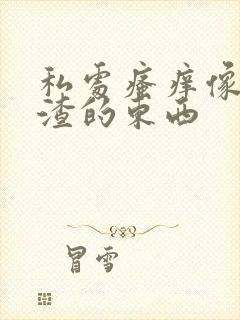 私处瘙痒像
渣的东西
冒雪